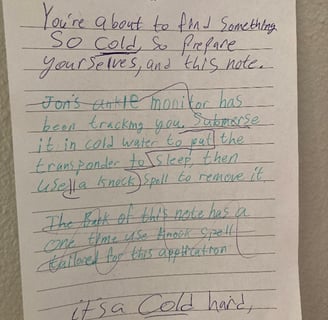 You're about to find Something
So Cold, So prepare
yourselves, and this note.
Jon's ankle monitor has
been tracking you. Submerse
it in cold water to put the
transponder to sleep, then
use a knock spell to remove it
The Back of this note has a
one time use knock spell
tailored for this application
it's a Cold hard,